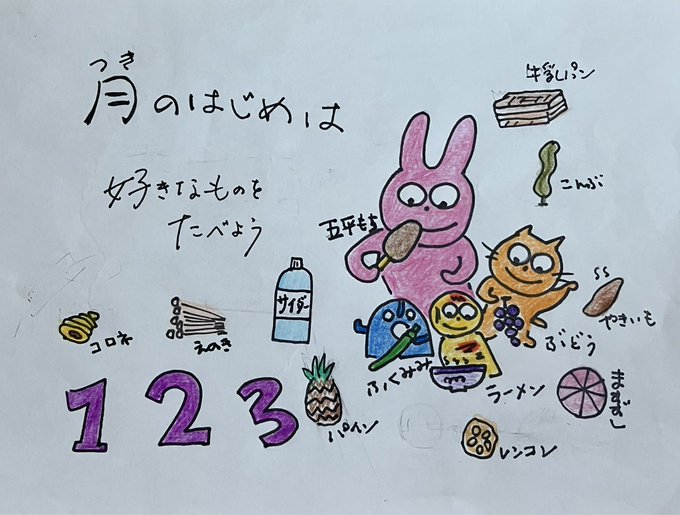 つき
月のはじめは
好きなものを
たべよう
牛乳パン
こんぶ
五平もち
サイダー
コロネ
えのき
やきいも
ぶどう
ふくみみ
ラーメン
ますずし
1 2 3
パイン
レンコン